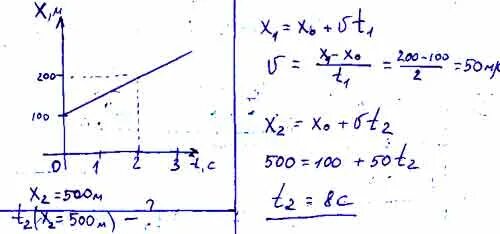 X, м
200
100
0 1 2 3 t, c
X₂ = 500м
t₂ (X₂ = 500м) – ?
X₁ = X₀ + υt₁
υ = (X₁ – X₀)/t₁ = (200 – 100)/2 = 50 м/с
X₂ = X₀ + υt₂
500 = 100 + 50t₂
t₂ = 8c